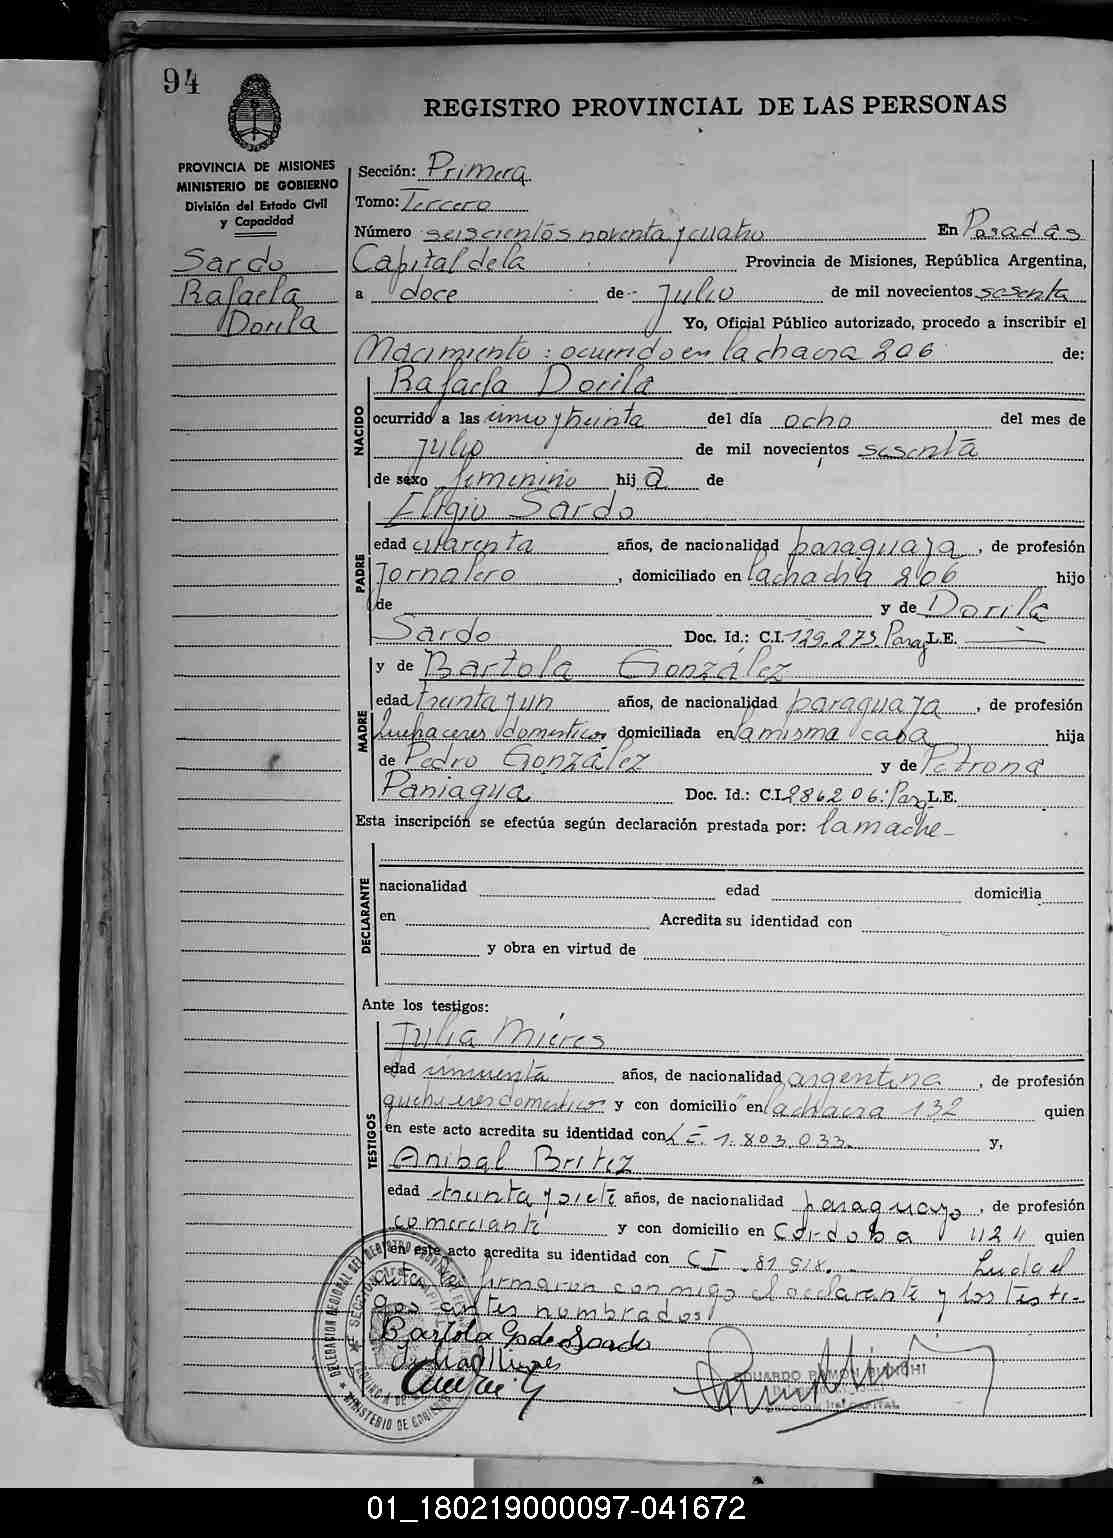 94
REGISTRO PROVINCIAL DE LAS PERSONAS
PROVINCIA DE MISIONES
MINISTERIO DE GOBIERNO
División del Estado Civil
y Capacidad
Sardo
Rafaela
Dorila
Sección: Primera
Tomo: Tercero
Número seiscientos noventa y cuatro En Posadas
Capital de la Provincia de Misiones, República Argentina,
a doce de Julio de mil novecientos sesenta
Yo, Oficial Público autorizado, procedo a inscribir el
Nacimiento: ocurrido en la chacra 206 de:
NACIDO
Rafaela Dorila
ocurrido a las cinco y treinta del día ocho del mes de
Julio de mil novecientos sesenta
de sexo femenino hija de
PADRE
Eligio Sardo
edad cuarenta años, de nacionalidad paraguaya, de profesión
Jornalero, domiciliado en la chacra 206 hijo
de y de Dorila
Sardo Doc. Id.: C.I. 129.273. Parag L.E.
MADRE
y de Bartola González
edad treinta y un años, de nacionalidad paraguaya, de profesión
quehaceres domesticos domiciliada en la misma casa hija
de Pedro González y de Petrona
Paniagua Doc. Id.: C.I. 286206: Parg L.E.
Esta inscripción se efectúa según declaración prestada por: la madre-
DECLARANTE
nacionalidad edad domicilia
en Acredita su identidad con
y obra en virtud de
Ante los testigos:
TESTIGOS
Julia Mieres
edad cincuenta años, de nacionalidad argentina, de profesión
quehaceres domesticos y con domicilio en la chacra 132 quien
en este acto acredita su identidad con L.E. 1.803.033. y,
Anibal Britez
edad treinta y siete años, de nacionalidad paraguayo, de profesión
comerciante y con domicilio en Córdoba 1124 quien
en este acto acredita su identidad con CI. 81.918. - Leida el
acta la firmaron conmigo el declarante y los testi-
gos antes nombrados
Bartola G de Sardo
Julia Mieres
EDUARDO RAMON BIANCHI
01_180219000097-041672